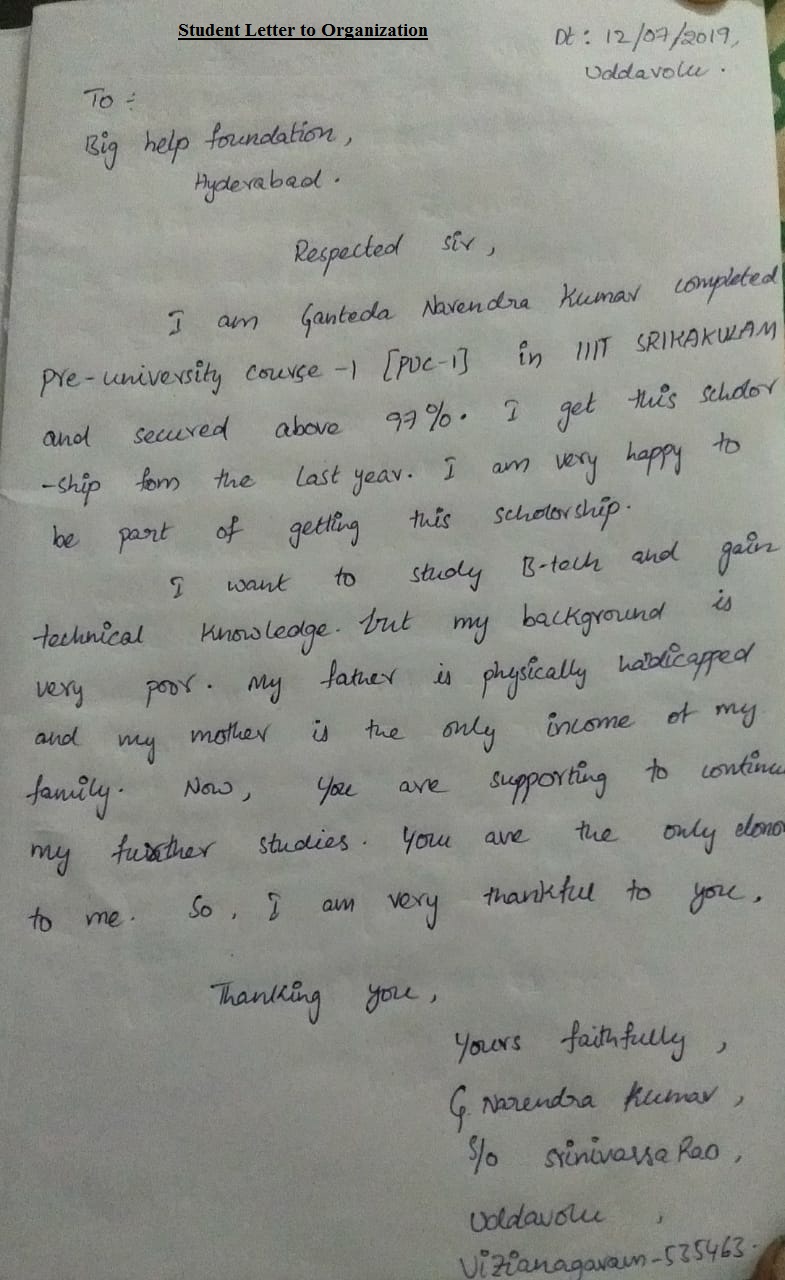 Student Letter to Organization
Dt : 12/07/2019,
Uddavolu .
To :
Big help foundation,
Hyderabad .
Respected sir,
I am Ganteda Narendra Kumar completed
Pre-university course -1 [PUC-1] in IIIT SRIKAKULAM
and secured above 97%. I get this scholor
-ship fom the last year. I am very happy to
be part of getting this scholorship.
I want to study B-tech and gain
technical knowledge. but my background is
very poor. My father is physically hadicapped
and my mother is the only income of my
family. Now, you are supporting to continu
my further studies. You are the only dono
to me. So, I am very thankful to you.
Thanking you,
Yours faithfully,
G. Narendra Kumar,
S/o Srinivassa Rao,
Uddavolu ,
Vizianagaram-535463.